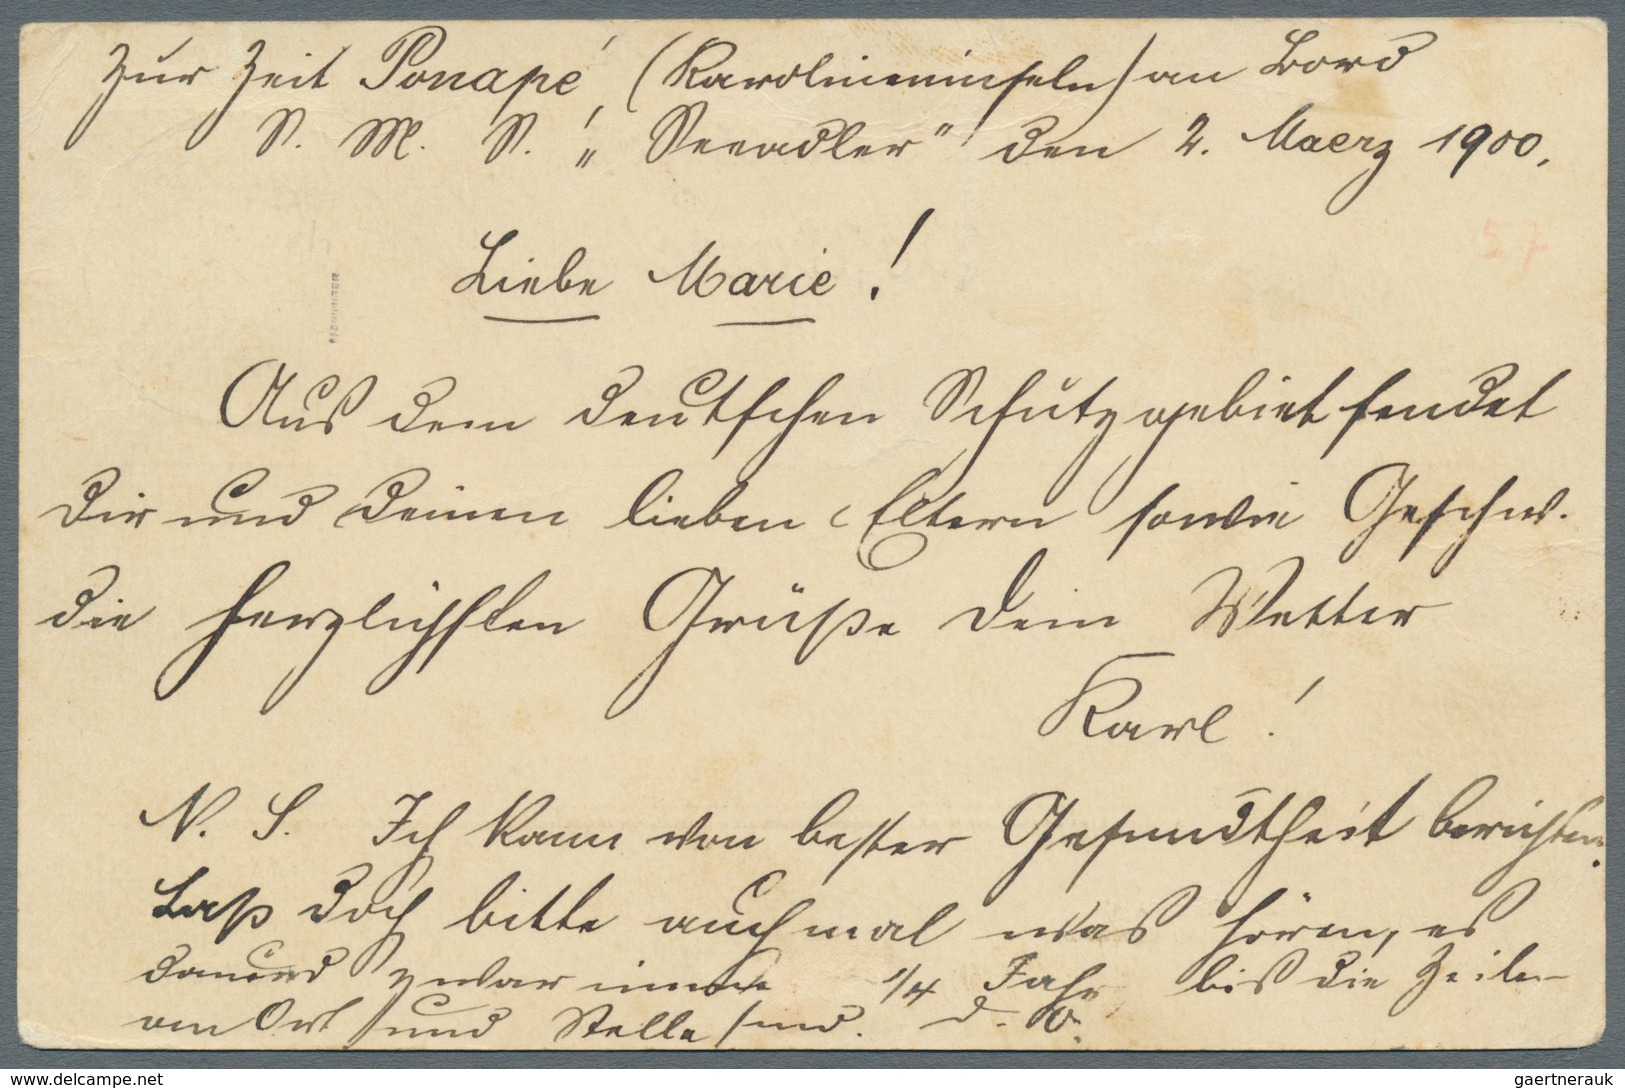 Zur Zeit Ponape, (Karolineninseln) an Bord
S. M. S. „Seeadler" den 2. Maerz 1900.
57
Liebe Marie!
Aus dem deutschen Schutzgebiet sendet
Dir und Deinen lieben Eltern sowie Geschw.
die herzlichsten Grüße Dein Vetter
Karl!
N. S. Ich kann von bester Gesundtheit berichten.
Laß doch bitte auch mal was hören, es
dauerd zwar immer 1/4 Jahr bis die Zeilen
an Ort und Stelle sind. D. O.
delcampe.net
gaertnerauk